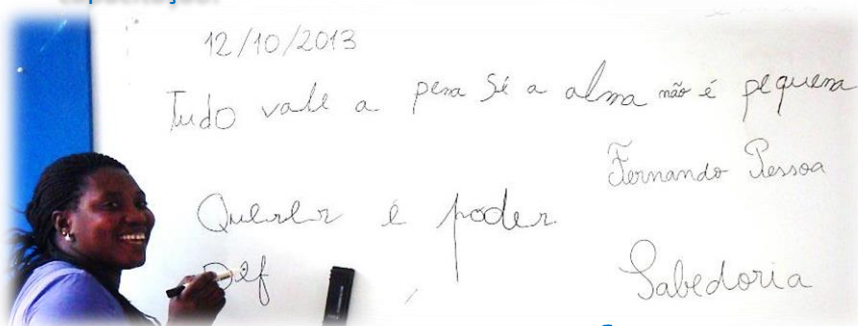 12/10/2013
Tudo vale a pena Se a alma não é pequena
Fernando Pessoa
Querer é poder
Def
Sabedoria